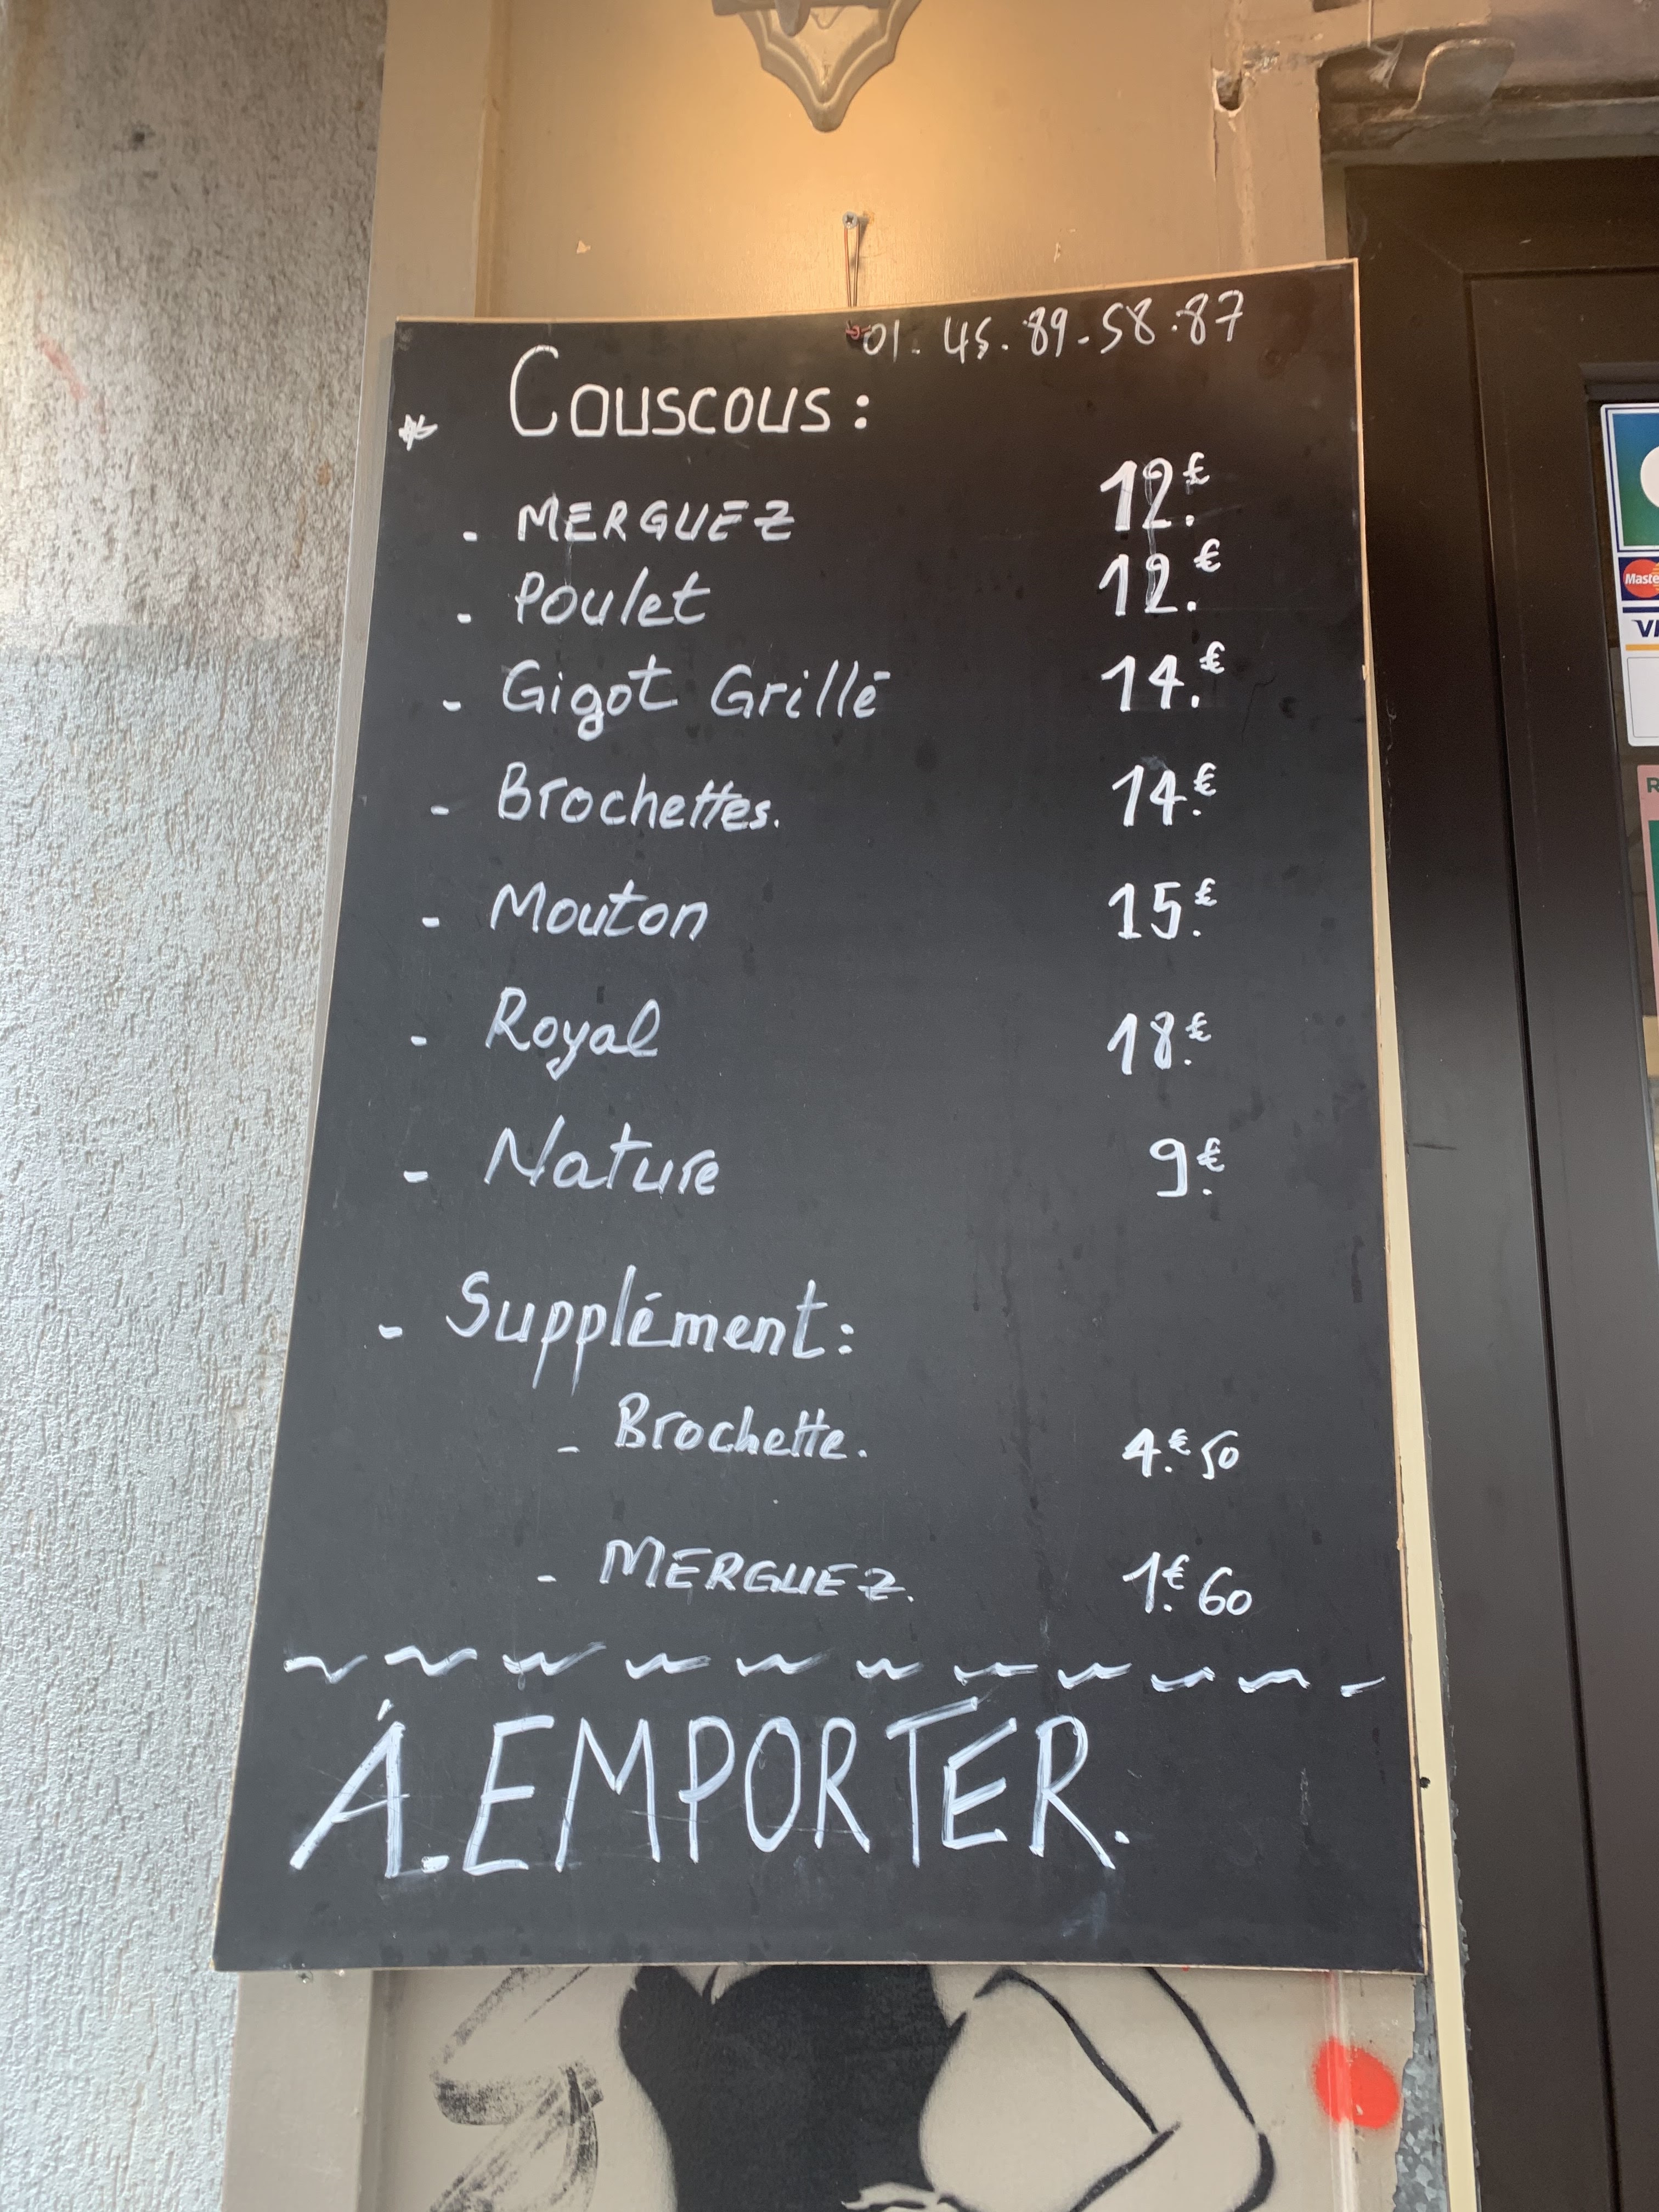 01. 45. 89. 58. 87
* Couscous :
- MERGUEZ 12.€
- Poulet 12.€
- Gigot Grillé 14.€
- Brochettes. 14.€
- Mouton 15.€
- Royal 18.€
- Nature 9.€
- Supplément :
- Brochette. 4.€ 50
- MERGUEZ. 1.€ 60
À.EMPORTER.